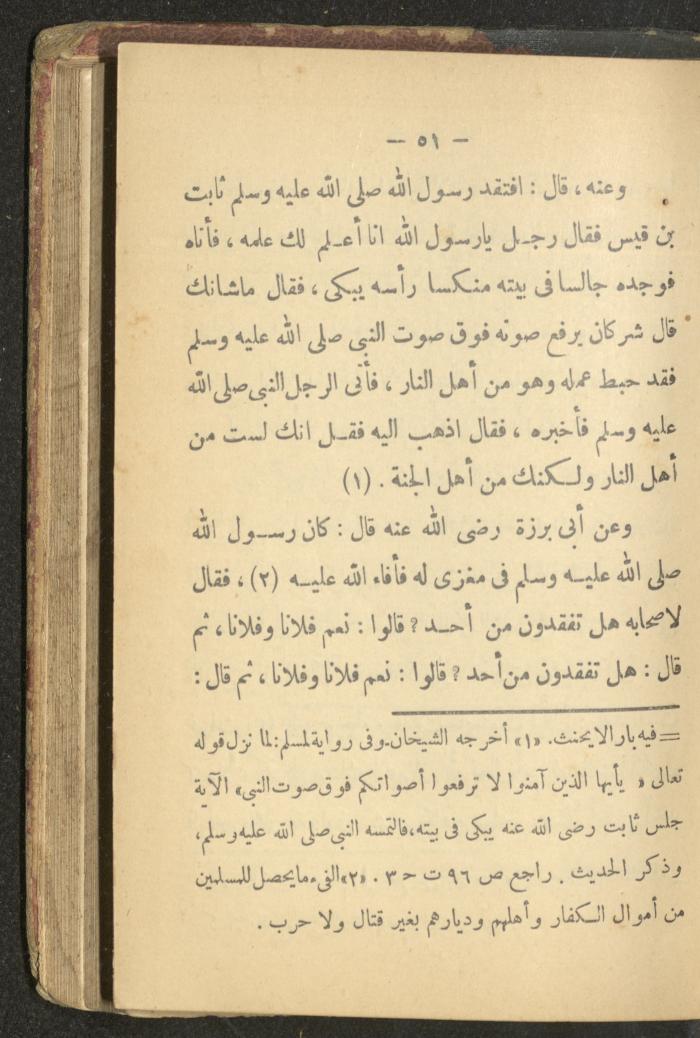 — ٥١ —
وعنه ، قال : افتقد رسول الله صلى الله عليه وسلم ثابت
بن قيس فقال رجل يارسول الله انا أعلم لك علمه ، فأتاه
فوجده جالسا فى بيته منكسا رأسه يبكى ، فقال ماشانك
قال شر كان يرفع صوته فوق صوت النبى صلى الله عليه وسلم
فقد حبط عمله وهو من أهل النار ، فأتى الرجل النبى صلى الله
عليه وسلم فأخبره ، فقال اذهب اليه فقل انك لست من
أهل النار ولكنك من أهل الجنة . (١)
وعن أبى برزة رضى الله عنه قال : كان رسول الله
صلى الله عليه وسلم فى مغزى له فأفاء الله عليه (٢) ، فقال
لاصحابه هل تفقدون من أحد ؟ قالوا : نعم فلانا وفلانا ، ثم
قال : هل تفقدون من أحد ؟ قالوا : نعم فلانا وفلانا ، ثم قال :
= فيه بار الايحنث. «١» أخرجه الشيخان.وفى رواية لمسلم: لما نزل قوله
تعالى « يأيها الذين آمنوا لا ترفعوا أصواتكم فوق صوت النبى» الآية
جلس ثابت رضى الله عنه يبكى فى بيته،فالتمسه النبى صلى الله عليه وسلم،
وذكر الحديث . راجع ص ٩٦ ت ح ٣ . «٢» الفىء مايحصل للمسلمين
من أموال الكفار وأهلهم وديارهم بغير قتال ولا حرب .